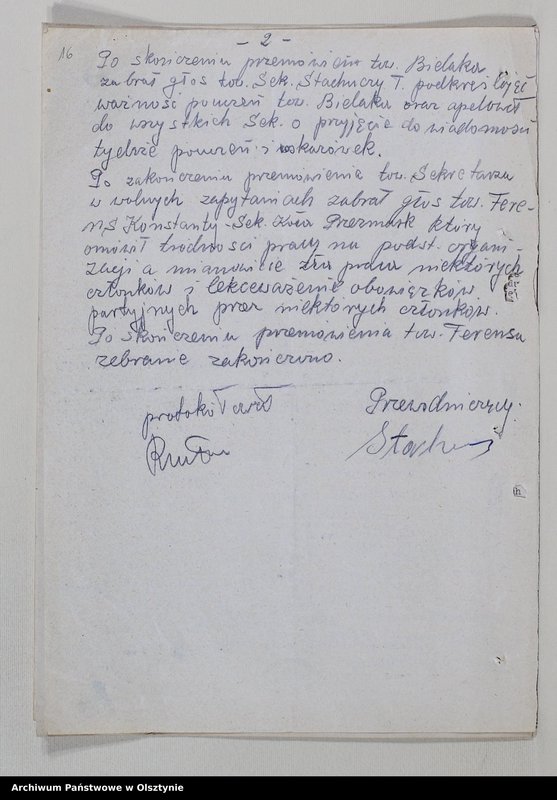 16
- 2 -
Po skończeniu przemówienia tow. Bielaka
zabrał głos tow. Sek. Stachuczy T. podkreślając
ważność pouczeń tow. Bielaka oraz apelował
do wszystkich Sek. o przyjęcie do wiadomości
tychże pouczeń i wskazówek.
Po zakończeniu przemówienia tow. Sekretarza
w wolnych zapytaniach zabrał głos tow. Fere-
ns Konstanty - Sek. Koła Przezmark który
omówił trudności pracy na podst. organi-
zacji a mianowicie zła praca niektórych
członków i lekceważenie obowiązków
partyjnych przez niektórych członków.
Po skończeniu przemówienia tow. Ferensa
zebranie zakończono.
protokółował
Przewodniczący.
Archiwum Państwowe w Olsztynie